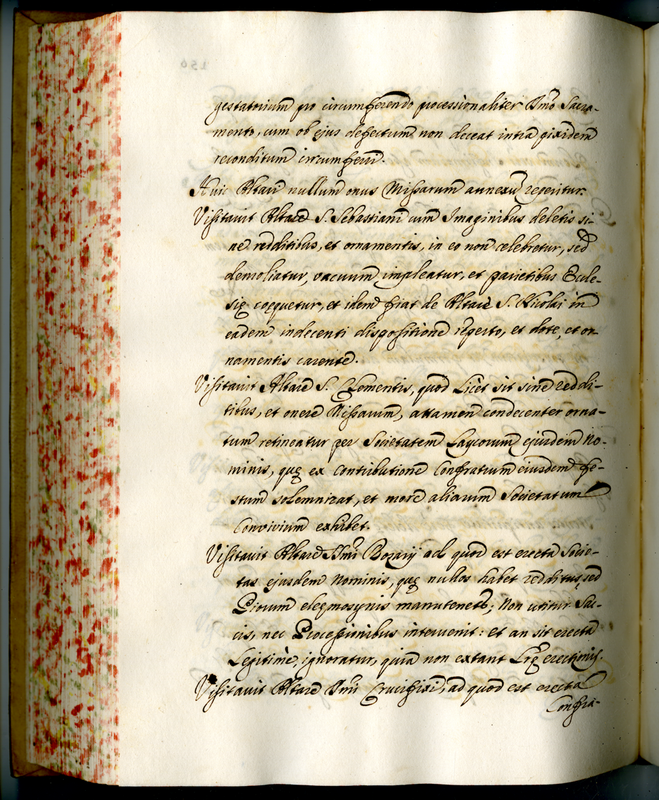 gestatorium pro circumferendo processionaliter SSmo Sacra-
mento, cum ob ejus defectum non deceat intra pixidem
reconditum circumferri.
Huic Altari nullum onus Missarum annexũ reperitur.
Visitavit Altare S. Sebastiani cum Imaginibus deletis si-
ne redditibus, et ornamentis, in eo non celebretur, sed
demoliatur, vacuum impleatur, et parietibus Eccle-
się coequetur, et idem fiat de Altare S. Nicolai in
eadem indecenti dispositione reperto, et dote, et or-
namentis carente.
Visitavit Altare S. Clementis, quod licet sit sine reddi-
tibus, et onere Missarum, attamen condecenter orna-
tum retineatur per Societatem Laycorum ejusdem No-
minis, quę ex Contributione Confratrum eiusdem fe-
stum solemnizat, et more aliarum Societatum
Convivium exhibet.
Visitavit Altare SSmi Rozarij ad quod est erecta Socie-
tas ejusdem Nominis, quę nullos habet redditus, sed
Pirum elegmosynis manutenetr, Non utitur Sac-
cis, nec Processionibus intervenit: et an sit erecta
Legitimè, ignoratur, quia non extant Lrę erectionis.
Visitavit Altare SSmi Crucifixi, ad quod est erecta
Confra-